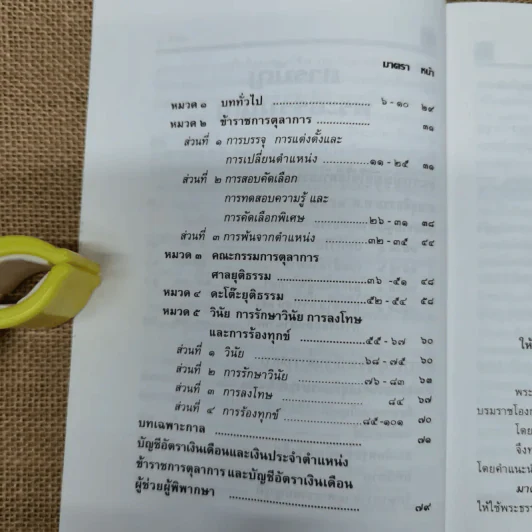 มาตรา หน้า
หมวด ๑ บททั่วไป ..................... ๖ - ๑๐ ๒๙
หมวด ๒ ข้าราชการตุลาการ ................. ๓๑
ส่วนที่ ๑ การบรรจุ การแต่งตั้งและ
การเปลี่ยนตำแหน่ง ............ ๑๑ - ๒๕ ๓๑
ส่วนที่ ๒ การสอบคัดเลือก
การทดสอบความรู้ และ
การคัดเลือกพิเศษ ............ ๒๖ - ๓๑ ๓๘
ส่วนที่ ๓ การพ้นจากตำแหน่ง ............ ๓๒ - ๓๕ ๔๔
หมวด ๓ คณะกรรมการตุลาการ
ศาลยุติธรรม ..................... ๓๖ -๕๑ ๔๘
หมวด ๔ ดะโต๊ะยุติธรรม ................. ๕๒ - ๕๔ ๕๘
หมวด ๕ วินัย การรักษาวินัย การลงโทษ
และการร้องทุกข์ ................. ๕๕ - ๖๗ ๖๐
ส่วนที่ ๑ วินัย ..................... ๖๘ - ๗๕ ๖๐
ส่วนที่ ๒ การรักษาวินัย ................. ๗๖ - ๘๓ ๖๑
ส่วนที่ ๓ การลงโทษ ..................... ๘๔ ๖๗
ส่วนที่ ๔ การร้องทุกข์ ................. ๘๕-๑๐๑ ๗๐
บทเฉพาะกาล ..................... ๗๑
บัญชีอัตราเงินเดือนและเงินประจำตำแหน่ง
ข้าราชการตุลาการ และบัญชีอัตราเงินเดือน
ผู้ช่วยผู้พิพากษา ..................... ๗๙
ให้
พระ
บรมราชโอง
โดย
จึงท
โดยคำแนะนำ
มาต
ให้ใช้พระธรร